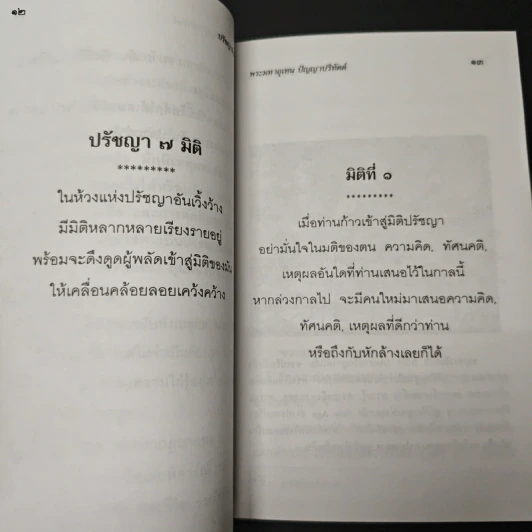 ๑๒
ปรัชญา ๗ มิติ
*********
ในห้วงแห่งปรัชญาอันเวิ้งว้าง
มีมิติหลากหลายเรียงรายอยู่
พร้อมจะดึงดูดผู้พลัดเข้าสู่มิติของมัน
ให้เคลื่อนคล้อยลอยเคว้งคว้าง
พระมหาอุเทน ปัญญาปริทัตต์
๑๓
มิติที่ ๑
*********
เมื่อท่านก้าวเข้าสู่มิติปรัชญา
อย่ามั่นใจในมติของตน ความคิด, ทัศนคติ,
เหตุผลอันใดที่ท่านเสนอไว้ในกาลนี้
หากล่วงกาลไป จะมีคนใหม่มาเสนอความคิด,
ทัศนคติ, เหตุผลที่ดีกว่าท่าน
หรือถึงกับหักล้างเลยก็ได้